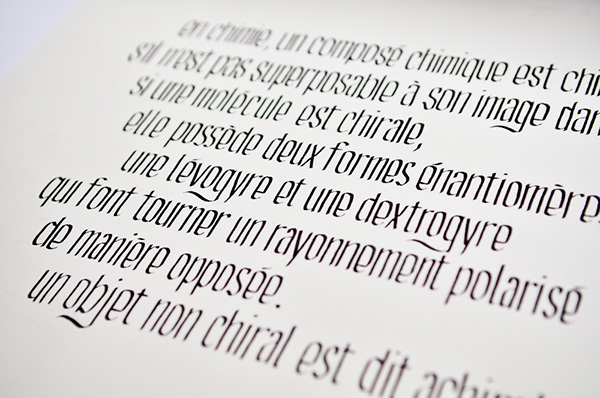 en chimie, un composé chimique est chi
s'il n'est pas superposable à son image dan
si une molécule est chirale,
elle possède deux formes énantiomère
une lévogyre et une dextrogyre
qui font tourner un rayonnement polarisé
de manière opposée.
un objet non chiral est dit achiral